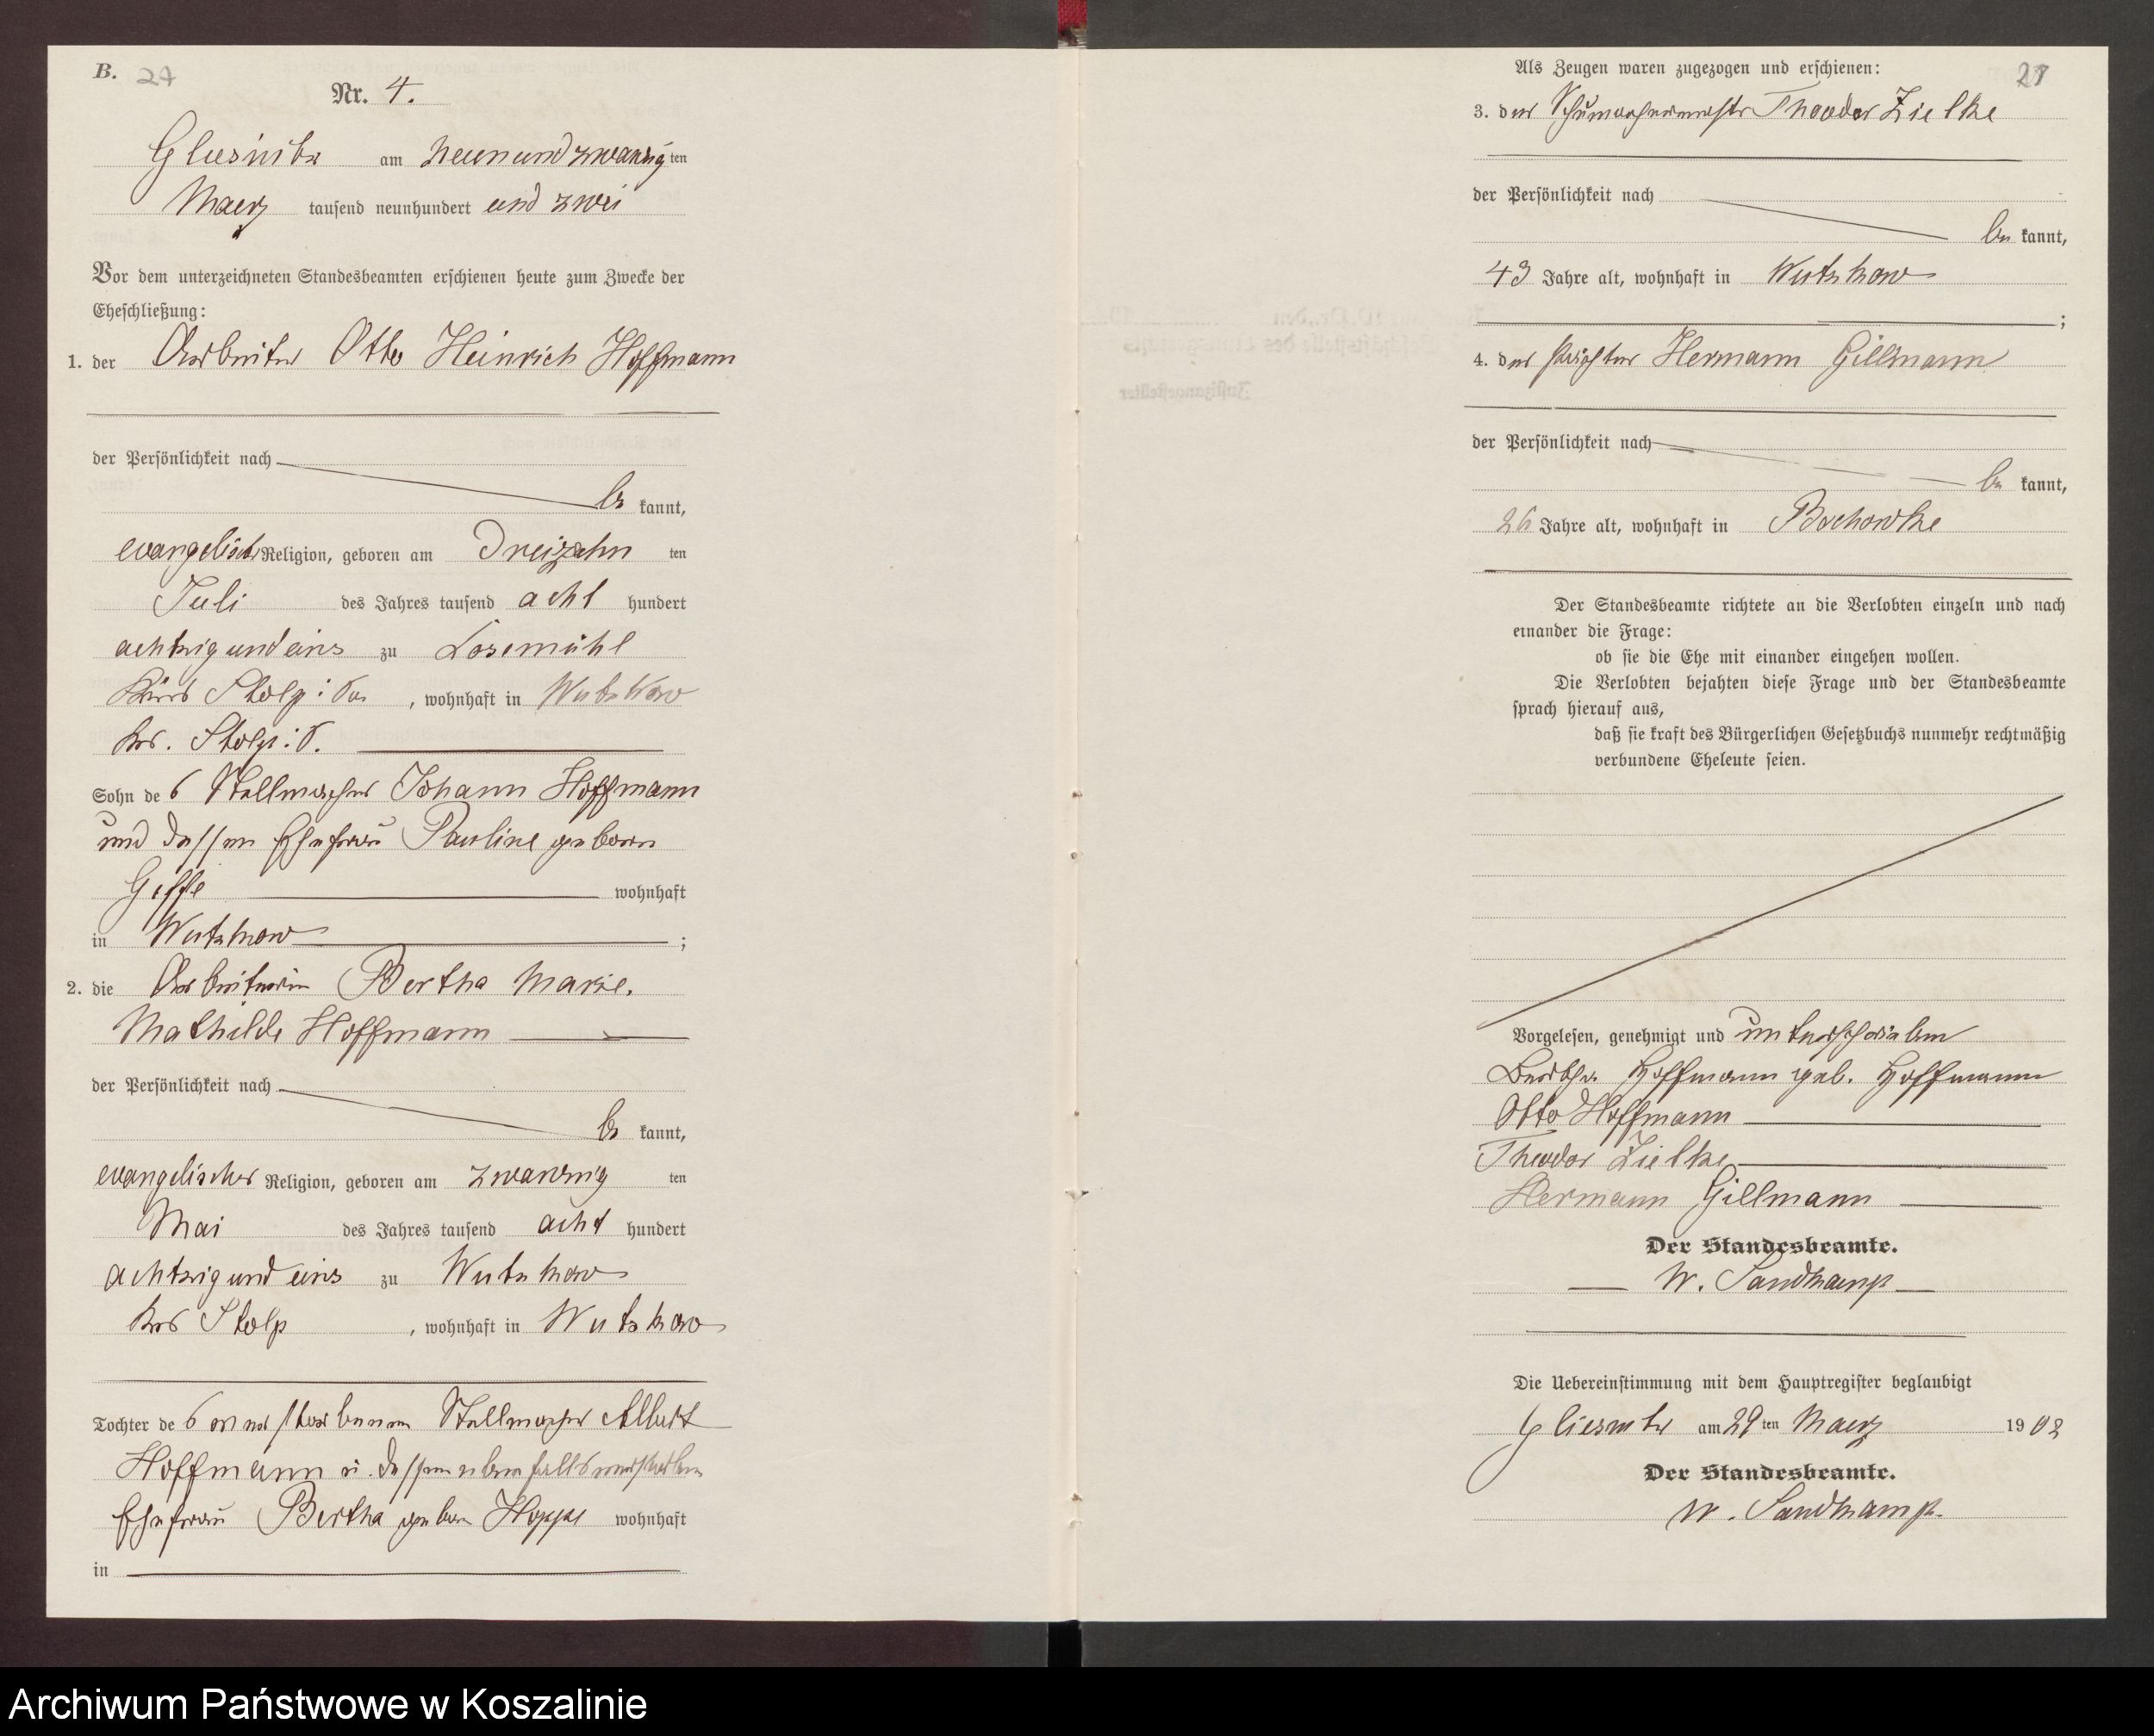 B. 27
Nr. 4.
Gliesnitz am neunundzwanzig ten
Maerz tausend neunhundert und zwei
Vor dem unterzeichneten Standesbeamten erschienen heute zum Zwecke der
Eheschließung:
1. der Arbeiter Otto Heinrich Hoffmann
der Persönlichkeit nach
be kannt,
evangelisch Religion, geboren am Dreizehn ten
Juli des Jahres tausend acht hundert
achtzig und eins zu Losemühl
Kreis Stolp i., wohnhaft in Wutzkow
Krs. Stolp i.
Sohn des Stellmacher Johann Hoffmann
und dessen Ehefrau Pauline geboren
wohnhaft
in Wutzkow ;
2. die Arbeiterin Bertha Marie
Mathilde Hoffmann
der Persönlichkeit nach
be kannt,
evangelischer Religion, geboren am zwanzig ten
Mai des Jahres tausend acht hundert
achtzig und eins zu Wutzkow
Krs Stolp, wohnhaft in Wutzkow
Tochter des verstorbenen Stellmacher Albert
Hoffmann u. dessen ebenfalls verstorbenen
Ehefrau Bertha geboren Hoppe wohnhaft
in
Als Zeugen waren zugezogen und erschienen:
3. der Schumachermeister Theodor Zielke
der Persönlichkeit nach
be kannt,
43 Jahre alt, wohnhaft in Wutzkow
;
4. der Hermann Gillmann
der Persönlichkeit nach
be kannt,
26 Jahre alt, wohnhaft in Bochowke
Der Standesbeamte richtete an die Verlobten einzeln und nach
einander die Frage:
ob sie die Ehe mit einander eingehen wollen.
Die Verlobten bejahten diese Frage und der Standesbeamte
sprach hierauf aus,
daß sie kraft des Bürgerlichen Gesetzbuchs nunmehr rechtmäßig
verbundene Eheleute seien.
Vorgelesen, genehmigt und unterschrieben
Bertha Hoffmann geb. Hoffmann
Otto Hoffmann
Theodor Zielke
Hermann Gillmann
Der Standesbeamte.
W. Sandkamp
Die Uebereinstimmung mit dem Hauptregister beglaubigt
Gliesnitz am 29 ten Maerz 1902
Der Standesbeamte.
W. Sandkamp.
Archiwum Państwowe w Koszalinie